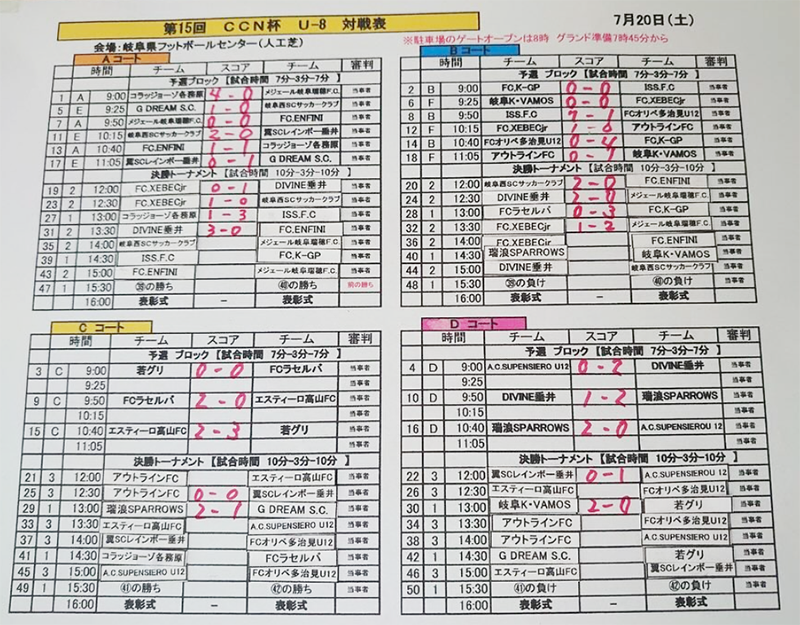 第15回 CCN杯 U-8 対戦表
7月20日(土)
会場:岐阜県フットボールセンター(人工芝)
※駐車場のゲートオープンは8時 グランド準備7時45分から
Aコート
時間 チーム スコア チーム 審判
予選ブロック【試合時間 7分-3分-7分】
1 A 9:00 コラッジョーゾ各務原 4-0 メジェール岐阜瑞穂F.C. 当事者
5 E 9:25 G DREAM S.C. 1-0 岐阜西SCサッカークラブ 当事者
7 A 9:50 メジェール岐阜瑞穂F.C. 0-0 FC.ENFINI 当事者
11 E 10:15 岐阜西SCサッカークラブ 2-0 翼SCレインボー垂井 当事者
13 A 10:40 FC.ENFINI 1-1 コラッジョーゾ各務原 当事者
17 E 11:05 翼SCレインボー垂井 0-1 G DREAM S.C. 当事者
決勝トーナメント【試合時間 10分-3分-10分】
19 2 12:00 FC.XEBECjr 0-1 DIVINE垂井 当事者
23 2 12:30 FC.XEBECjr 1-0 岐阜西SCサッカークラブ 当事者
27 1 13:00 コラッジョーゾ各務原 1-3 ISS.F.C 当事者
31 2 13:30 DIVINE垂井 3-0 メジェール岐阜瑞穂F.C. 当事者
35 2 14:00 岐阜西SCサッカークラブ メジェール岐阜瑞穂F.C. 当事者
39 1 14:30 ISS.F.C FC.K-GP 当事者
43 2 15:00 FC.ENFINI メジェール岐阜瑞穂F.C. 当事者
47 1 15:30 ㊴の勝ち ㊵の勝ち 前の勝ち
16:00 表彰式 - 表彰式
Bコート
時間 チーム スコア チーム 審判
予選 ブロック 【試合時間 7分-3分-7分】
2 B 9:00 FC.K-GP 0-0 ISS.F.C 当事者
6 F 9:25 岐阜K・VAMOS 0-0 FC.XEBECjr 当事者
8 B 9:50 ISS.F.C 7-1 FCオリベ多治見U12 当事者
12 F 10:15 FC.XEBECjr 1-0 アウトラインFC 当事者
14 B 10:40 FCオリベ多治見U12 0-4 FC.K-GP 当事者
18 F 11:05 アウトラインFC 岐阜K・VAMOS 当事者
決勝トーナメント 【試合時間 10分-3分-10分】
20 2 12:00 岐阜西SCサッカークラブ 2-0 FC.ENFINI 当事者
24 2 12:30 DIVINE垂井 メジェール岐阜瑞穂F.C. 当事者
28 1 13:00 FCラセルバ 0-3 FC.K-GP 当事者
32 2 13:30 FC.XEBECjr 1-2 メジェール岐阜瑞穂F.C. 当事者
36 2 14:00 FC.XEBECjr FC.ENFINI 当事者
40 1 14:30 瑞浪SPARROWS 岐阜K・VAMOS 当事者
44 2 15:00 DIVINE垂井 岐阜西SCサッカークラブ 当事者
48 1 15:30 ㊴の負け ㊵の負け 当事者
16:00 表彰式 - 表彰式
Cコート
時間 チーム スコア チーム 審判
予選 ブロック 【試合時間 7分-3分-7分】
3 C 9:00 若グリ 0-0 FCラセルバ 当事者
9:25 当事者
9 C 9:50 FCラセルバ 2-0 エスティーロ高山FC 当事者
10:15 当事者
15 C 10:40 エスティーロ高山FC 2-3 若グリ 当事者
11:05 当事者
決勝トーナメント 【試合時間 10分-3分-10分】
21 3 12:00 アウトラインFC エスティーロ高山FC 当事者
25 3 12:30 アウトラインFC 0-0 翼SCレインボー垂井 当事者
29 1 13:00 瑞浪SPARROWS 2-1 G DREAM S.C. 当事者
33 3 13:30 エスティーロ高山FC A.C.SUPENSIEROU U12 当事者
37 3 14:00 翼SCレインボー垂井 FCオリベ多治見U12 当事者
41 1 14:30 コラッジョーゾ各務原 FCラセルバ 当事者
45 3 15:00 A.C.SUPENSIERO U12 FCオリベ多治見U12 当事者
49 1 15:30 ㊶の勝ち ㊷の勝ち 当事者
16:00 表彰式 - 表彰式
Dコート
時間 チーム スコア チーム 審判
予選 ブロック 【試合時間 7分-3分-7分】
4 D 9:00 A.C.SUPENSIERO U12 0-2 DIVINE垂井 当事者
9:25 当事者
10 D 9:50 DIVINE垂井 1-2 瑞浪SPARROWS 当事者
10:15 当事者
16 D 10:40 瑞浪SPARROWS 2-0 A.C.SUPENSIERO U12 当事者
11:05 当事者
決勝トーナメント 【試合時間 10分-3分-10分】
22 3 12:00 翼SCレインボー垂井 0-1 A.C.SUPENSIEROU U12 当事者
26 3 12:30 エスティーロ高山FC FCオリベ多治見U12 当事者
30 1 13:00 岐阜K・VAMOS 2-0 若グリ 当事者
34 3 13:30 アウトラインFC FCオリベ多治見U12 当事者
38 3 14:00 アウトラインFC A.C.SUPENSIERO U12 当事者
42 1 14:30 G DREAM S.C. 若グリ 当事者
46 3 15:00 エスティーロ高山FC 翼SCレインボー垂井 当事者
50 1 15:30 ㊶の負け ㊷の負け 当事者
16:00 表彰式 - 表彰式